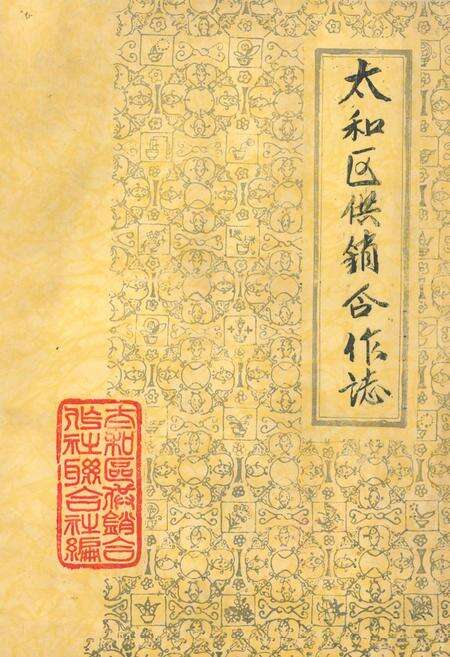 太和区供銷合作誌
太和區供銷合
作社聯合社編